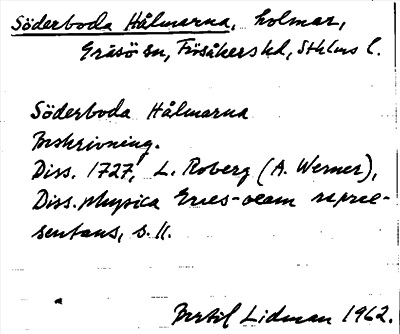 Söderboda Hålmarna, holmar,
Gräsö sn, Frösåkers hd, Sthlms l.
Söderboda Hålmarna
Beskrivning.
Diss. 1727, L. Roberg (A. Werner),
Diss. physica Grues-oeam repræ-
sentans, s. 11.
Bertil Lidman 1962.